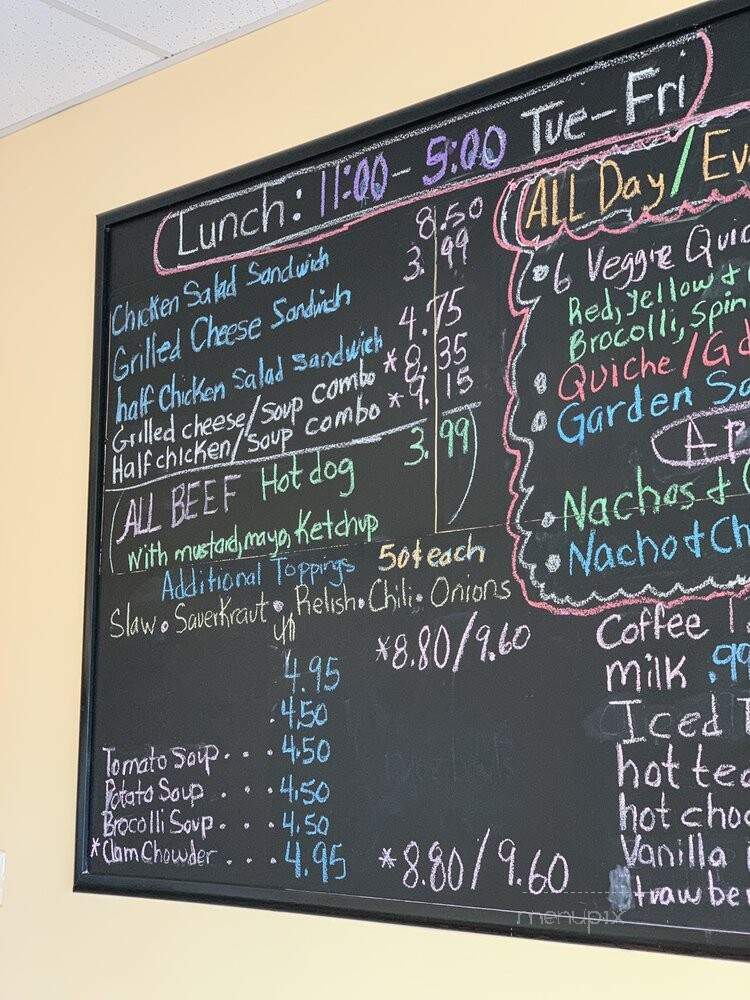 Lunch: 11:00-5:00 Tue-Fri
Chicken Salad Sandwich 8.50
Grilled Cheese Sandwich 3.99
half Chicken Salad Sandwich 4.75
Grilled cheese/Soup combo *8.35
Half chicken/Soup combo *9.15
ALL BEEF Hotdog 3.99
with mustard, mayo, Ketchup
Additional Toppings 50¢ each
Slaw • SauerKraut • Relish • Chili • Onions
*8.80/9.60
4.95
.4.50
Tomato Soup... 4.50
Potato Soup... 4.50
Brocolli Soup... 4.50
*Clam Chowder... 4.95 *8.80/9.60
ALL Day/Ev
6 Veggie Quic
Red, yellow &
Brocolli, Spin
Quiche/Ga
Garden Sa
AP
Nachos &
Nacho & Ch
Coffee
milk .99
Iced T
hot tea
hot choc
Vanilla
trawber
menupix